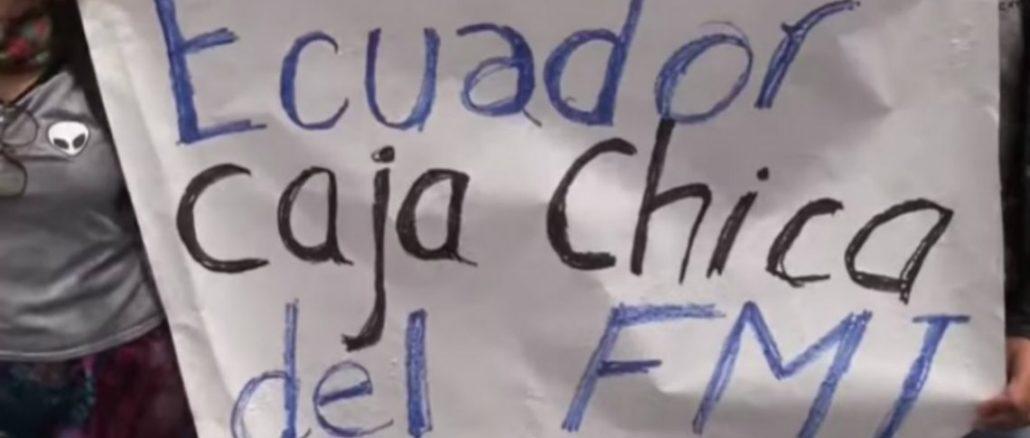 Ecuador
Caja Chica
del FMI